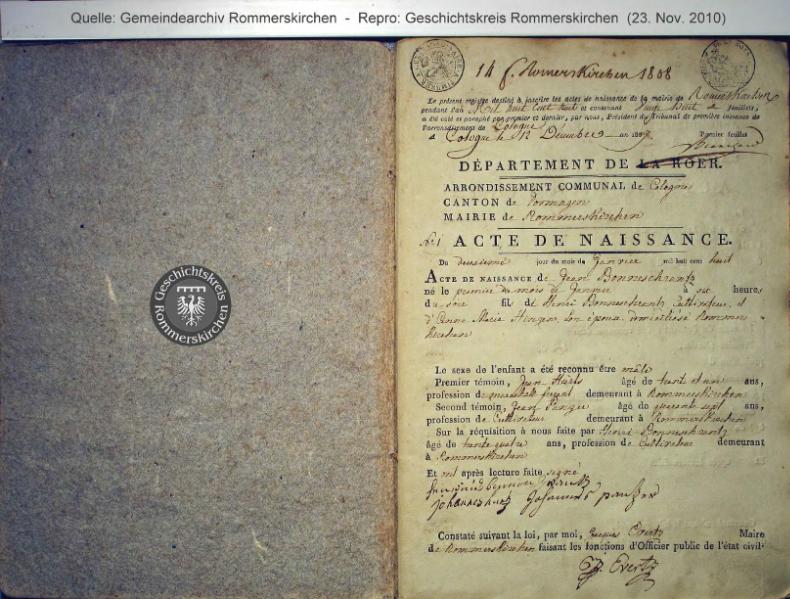 Quelle: Gemeindearchiv Rommerskirchen - Repro: Geschichtskreis Rommerskirchen (23. Nov. 2010)
Geschichtskreis
Rommerskirchen
14 f. Romerskirchen 1808
Le présent registre destiné à inscrire les actes de naissance de la mairie de Romerskirchen
pendant l'an Mil huit Cent huit et contenant feuillets,
a été coté et paraphé par premier et dernier, par nous, Président du Tribunal de première instance de
l'arrondissement de Cologne
à Cologne le 12 Décembre an 1807. Premier feuillet
DÉPARTEMENT DE LA ROER.
ARRONDISSEMENT COMMUNAL de Cologne
CANTON de Dormagen
MAIRIE de Rommerskirchen
No. 1 ACTE DE NAISSANCE.
Du deuxieme jour du mois de Janvier mil huit cent huit
ACTE DE NAISSANCE de Jean Bonneschrantz
né le premier du mois de Janvier à heures
du soir fil de Henri Bonneschrantz Cultivateur et
d'Anne Marie son épouse domiciliés à Rommers
kirchen
Le sexe de l'enfant a été reconnu être mâle
Premier témoin, Jean âgé de trent et un ans,
profession de demeurant à Rommerskirchen
Second témoin, Jean âgé de quarante sept ans,
profession de Cultivateur demeurant à Rommerskirchen
Sur la réquisition à nous faite par Henri Bonneschrantz
âgé de trente quatre ans, profession de Cultivateur demeurant
à Rommerskirchen
Et ont après lecture faite signé
Johannes
Constaté suivant la loi, par moi, Evertz Maire
de Rommerskirchen faisant les fonctions d'Officier public de l'état civil.
Evertz